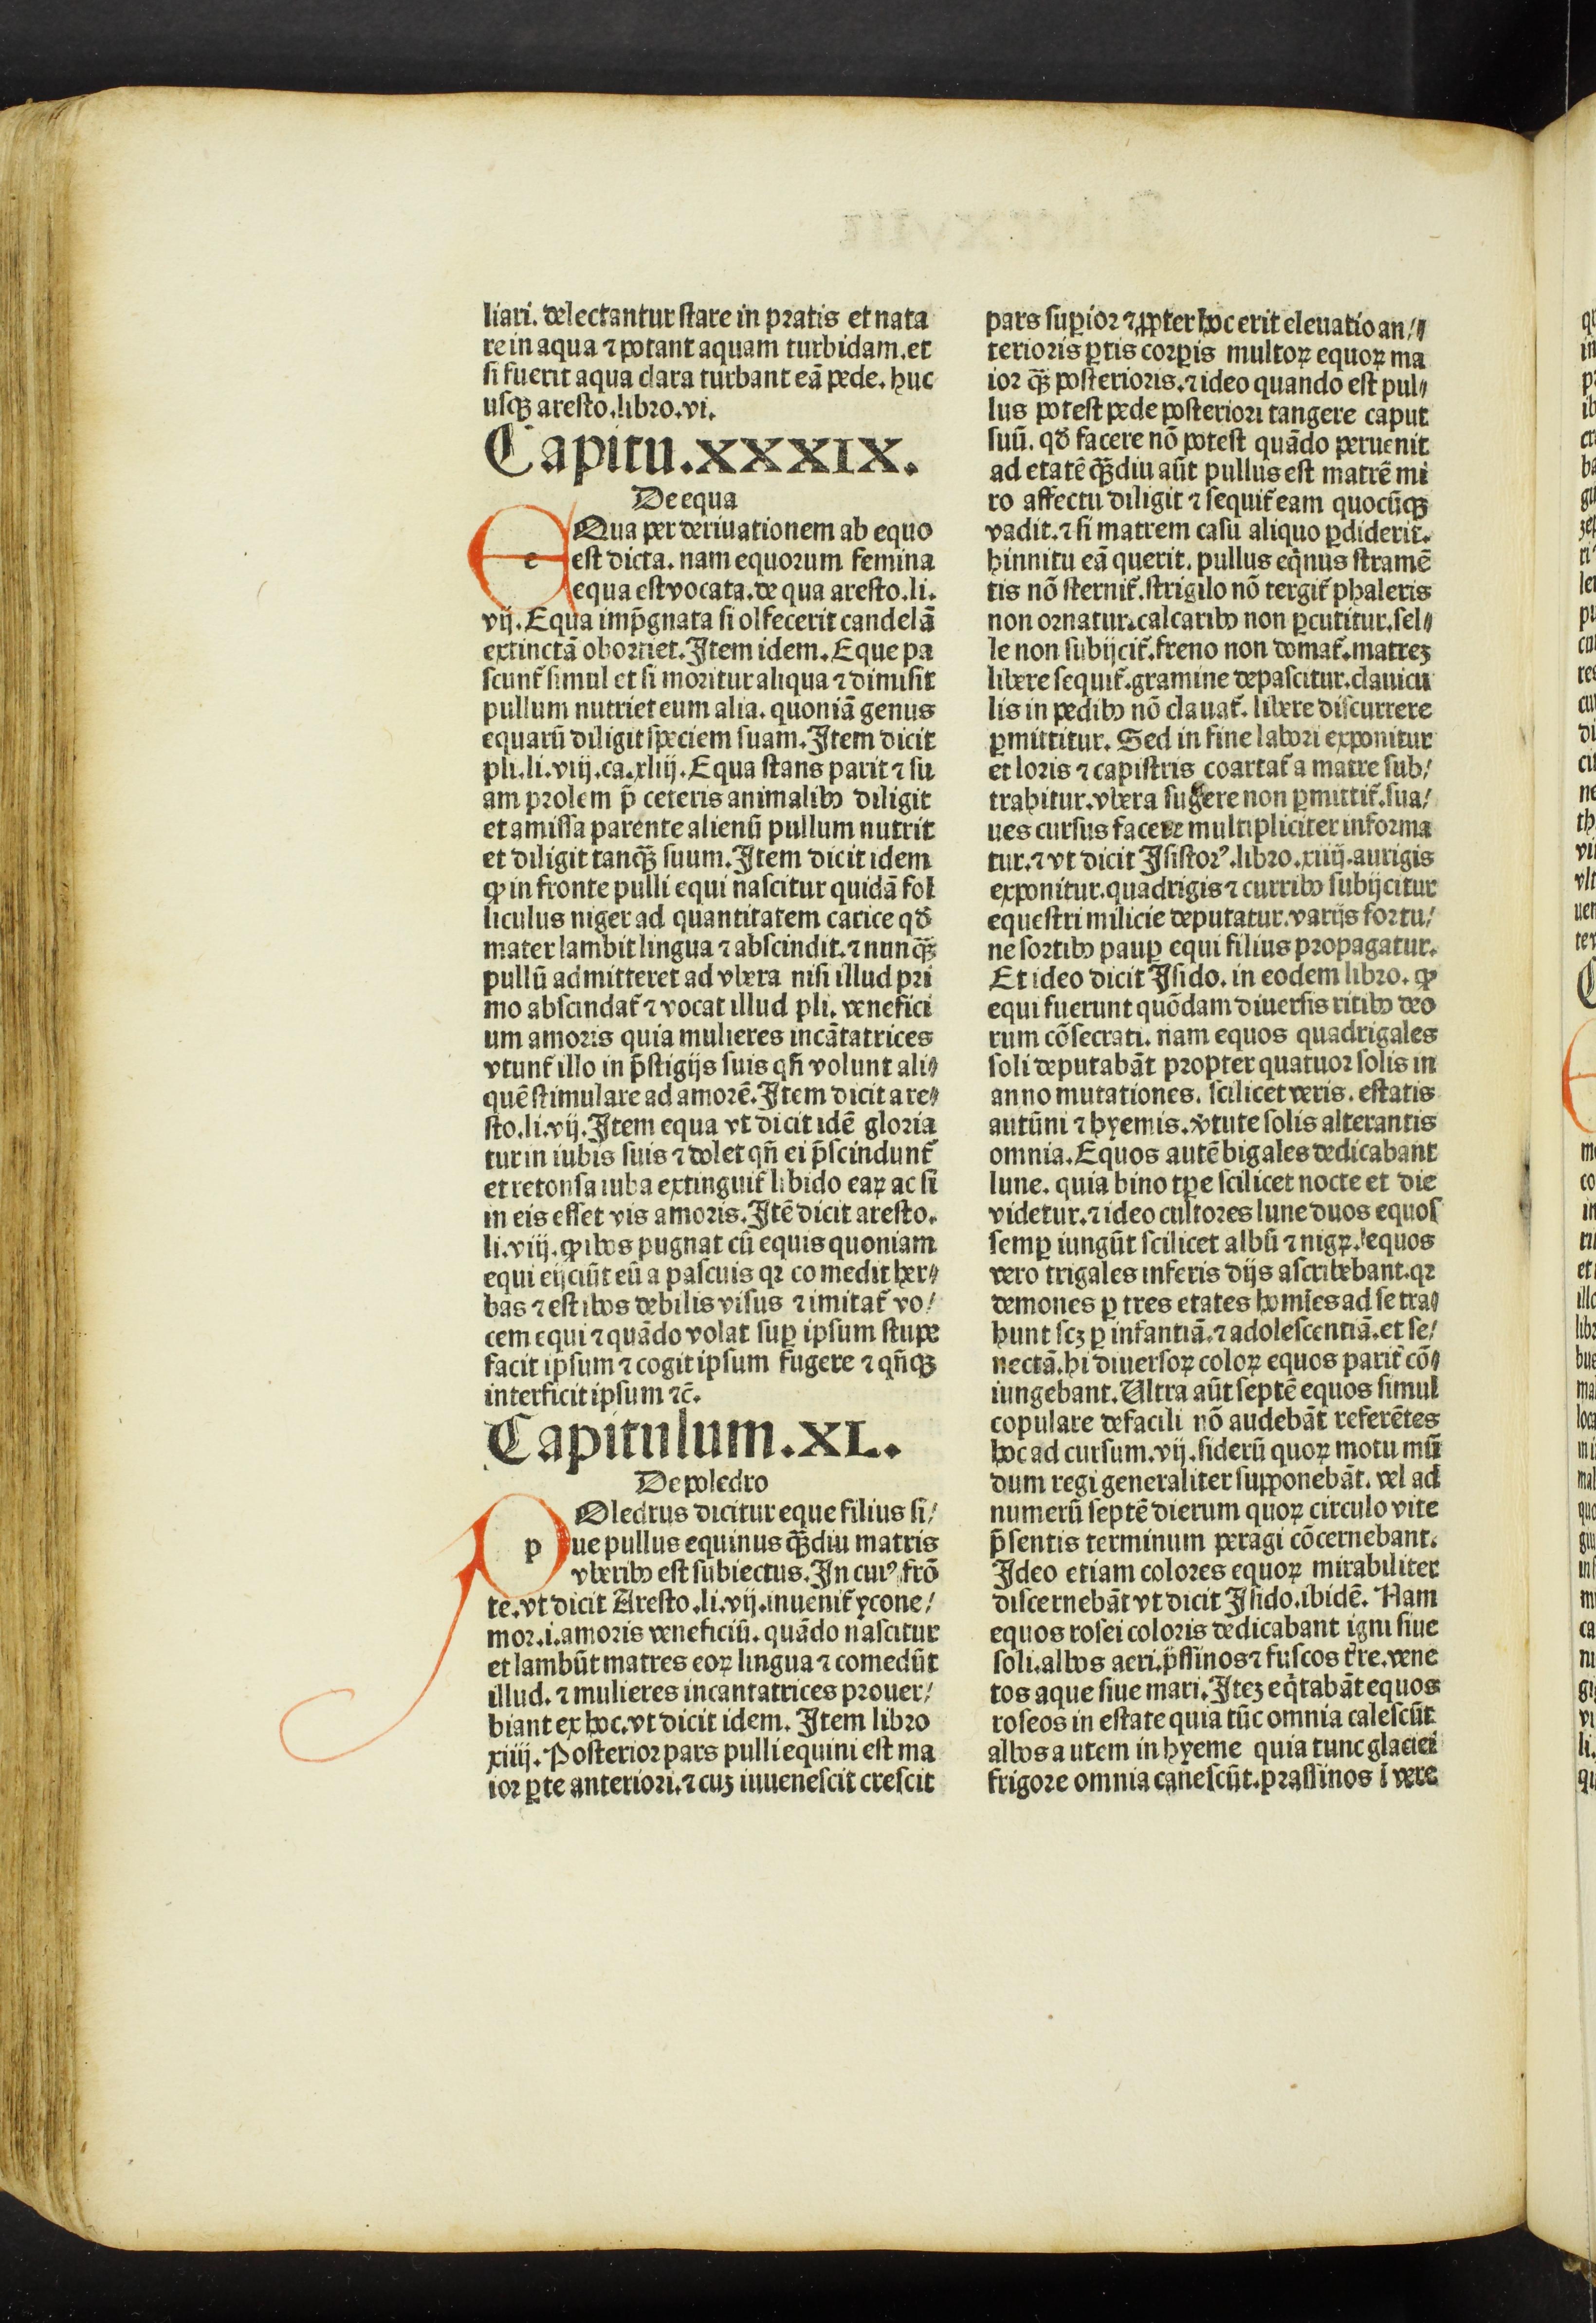 liari. delectantur stare in pratis et nata
re in aqua ⁊ potant aquam turbidam. et
si fuerit aqua clara turbant eā pede. huc
usqꝫ aresto. libro. vi.
Capitu. XXXIX.
De equa
e
Qua per deriuationem ab equo
est dicta. nam equorum femina
equa est vocata. de qua aresto. li.
vij. Equa imp̄gnata si olfecerit candelā
extinctā oboriet. Item idem. Eque pa
scunt᷑ simul et si moritur aliqua ⁊ dimisit
pullum nutriet eum alia. quoniā genus
equarū diligit speciem suam. Item dicit
pli. li. viij. ca. xliij. Equa stans parit ⁊ su
am prolem p̄ ceteris animalibꝰ diligit
et amissa parente alienū pullum nutrit
et diligit tanqꝫ̄ suum. Item dicit idem
ꝙ in fronte pulli equi nascitur quidā fol
liculus niger ad quantitatem carice qđ
mater lambit lingua ⁊ abscindit. ⁊ nunqꝫ̄
pullū admitteret ad vbera nisi illud pri
mo abscindat᷑ ⁊ vocat illud pli. venefici
um amoris quia mulieres incātatrices
vtunt᷑ illo in p̄stigijs suis qn̄ volunt ali⸗
quē stimulare ad amorē. Item dicit are⸗
sto. li. vij. Item equa vt dicit idē gloria
tur in iubis suis ⁊ dolet qn̄ ei p̄scindunt᷑
et retonsa iuba extinguit᷑ libido eaꝝ ac si
in eis esset vis amoris. Itē dicit aresto.
li. viij. ꝙ ibos pugnat cū equis quoniam
equi eijciūt eū a pascuis qꝛ comedit her⸗
bas ⁊ est ibos debilis visus ⁊ imitat᷑ vo/
cem equi ⁊ quādo volat suꝑ ipsum stupe
facit ipsum ⁊ cogit ipsum fugere ⁊ qn̄qꝫ
interficit ipsum ⁊c̄.
Capitulum. XL.
De poledro
p
Oledrus dicitur eque filius si/
ue pullus equinus qꝫ̄diu matris
vberibꝰ est subiectus. In cuiꝰ frō
te. vt dicit Aresto. li. vij. inuenit᷑ ycone/
mor. i. amoris veneficiū. quādo nascitur
et lambūt matres eoꝝ lingua ⁊ comedūt
illud. ⁊ mulieres incantatrices prouer/
biant ex hoc. vt dicit idem. Item libro
xiiij. Posterior pars pulli equini est ma
ior ꝑte anteriori. ⁊ cuꝫ iuuenescit crescit
pars suꝑior ⁊ ꝓpter hoc erit eleuatio an/⸗
terioris ꝑtis corꝑis multoꝝ equoꝝ ma
ior qꝫ̄ posterioris. ⁊ ideo quando est pul⸗
lus potest pede posteriori tangere caput
suū. qđ facere nō potest quādo peruenit
ad etatē qꝫ̄diu aūt pullus est matrē mi
ro affectu diligit ⁊ sequit᷑ eam quocūqꝫ
vadit. ⁊ si matrem casu aliquo ꝑdiderit.
hinnitu eā querit. pullus eqͥnus stramē
tis nō sternit᷑. strigilo nō tergit᷑ phaleris
non ornatur. calcaribꝰ non ꝑcutitur. sel⸗
le non subijcit᷑. freno non domat᷑. matreꝫ
libere sequit᷑. gramine depascitur. clauicu
lis in pedibꝰ nō clauat᷑. libere discurrere
ꝑmittitur. Sed in fine labori exponitur
et loris ⁊ capistris coartat᷑ a matre sub/
trahitur. vbera sugere non ꝑmittit᷑. sua/
ues cursus facere multipliciter informa
tur. ⁊ vt dicit Isistorꝰ. libro. xiiij. aurigis
exponitur. quadrigis ⁊ curribꝰ subijcitur
equestri milicie deputatur. varijs fortu/
ne sortibꝰ pauꝑ equi filius propagatur.
Et ideo dicit Isido. in eodem libro. ꝙ
equi fuerunt quōdam diuersis ritibꝰ deo
rum cōsecrati. nam equos quadrigales
soli deputabāt propter quatuor solis in
anno mutationes. scilicet veris. estatis
autūni ⁊ hyemis. v̓tute solis alterantis
omnia. Equos autē bigales dedicabant
lune. quia bino tꝑe scilicet nocte et die
videtur. ⁊ ideo cultores lune duos equos
semꝑ iungūt scilicet albū ⁊ nigꝝ. equos
vero trigales inferis dijs ascribebant. qꝛ
demones ꝑ tres etates homīes ad se tra⸗
hunt scꝫ ꝑ infantiā. ⁊ adolescentiā. et se/
nectā. hi diuersoꝝ coloꝝ equos parit᷑ cō⸗
iungebant. Ultra aūt septē equos simul
copulare defacili nō audebāt referētes
hoc ad cursum. vij. siderū quoꝝ motu mū
dum regi generaliter supponebāt. vel ad
numerū septē dierum quoꝝ circulo vite
p̄sentis terminum peragi cōcernebant.
Ideo etiam colores equoꝝ mirabiliter
discernebāt vt dicit Isido. ibidē. Nam
equos rosei coloris dedicabant igni siue
soli. albos aeri. p̄ssinos ⁊ fuscos t᷑re. vene
tos aque siue mari. Iteꝫ eqͥtabāt equos
roseos in estate quia tūc omnia calescūt
albos autem in hyeme quia tunc glaciei
frigore omnia canescūt. prassinos ī vere